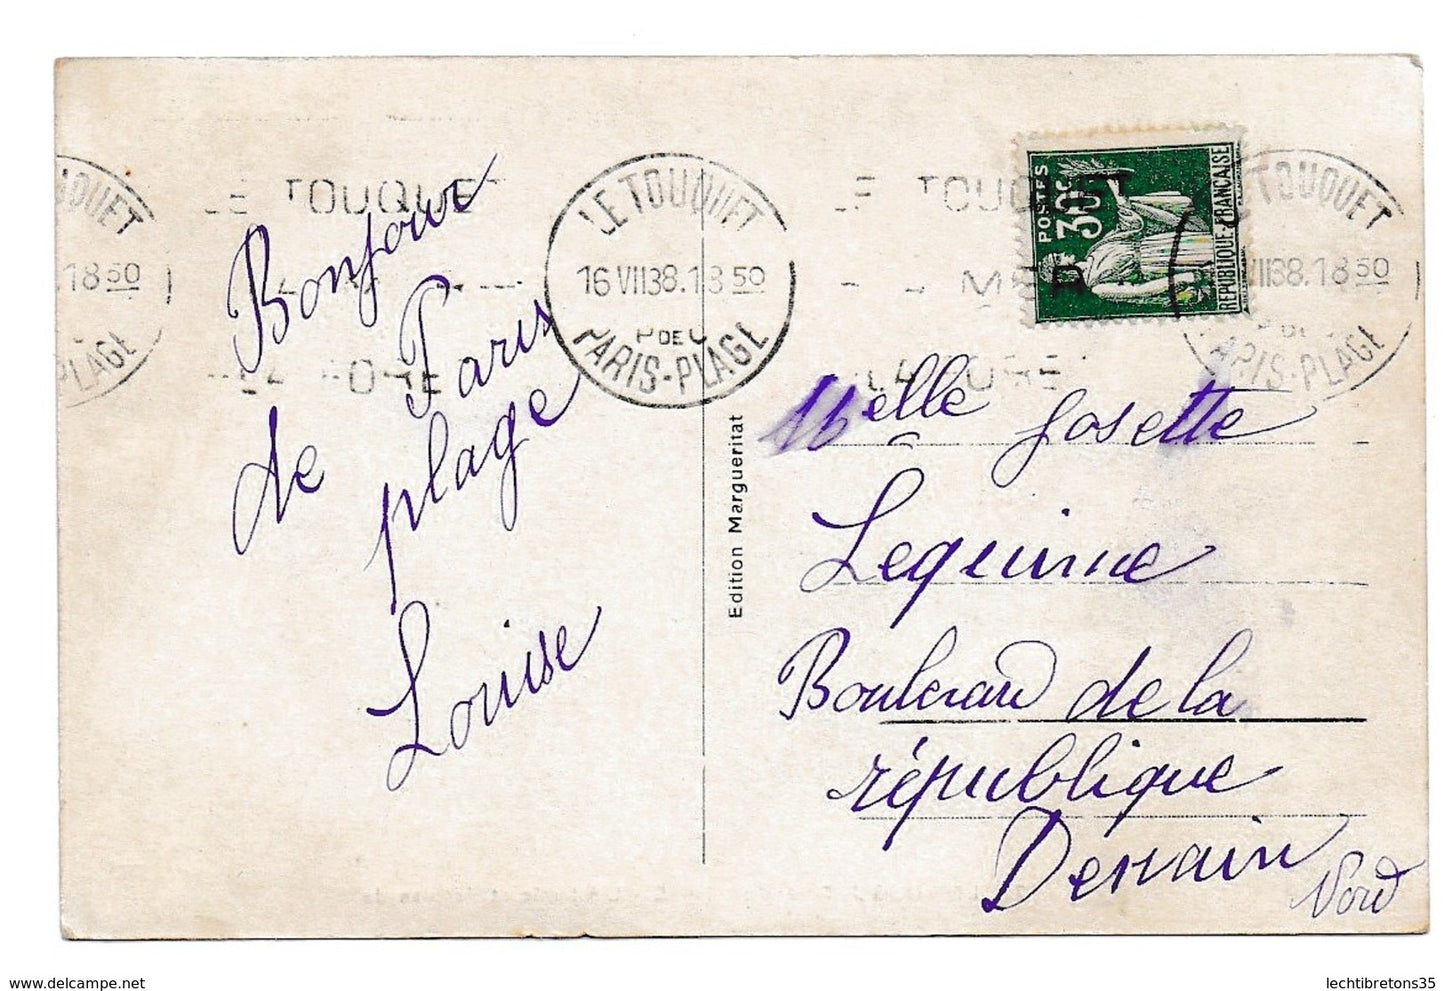 LE TOUQUET
Bonjour
de Paris
plage
Louise
LE TOUQUET
16 VII38.18 50
P DE C
PARIS-PLAGE
Edition Margueritat
POSTES
30c
REPUBLIQUE-FRANÇAISE
TOUQUET
VII38.18 50
PARIS-PLAGE
OUQUET
.18 50
PLAGE
LE TOUQUET
MER
Melle Josette
Lequime
Boulevard de la
république
Denain
Nord
www.delcampe.net
lechtibretons35